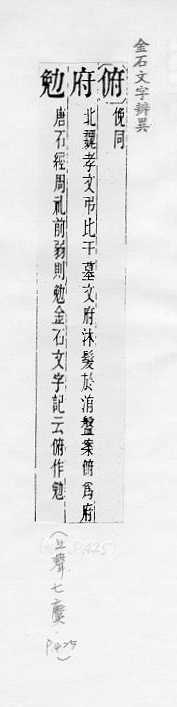 金石文字辨異
俯 俛同
府 北魏孝文弔比干墓文府沐髮於洧盤案俯爲府
勉 唐石經周礼前弱則勉金石文字記云俯作勉
(上聲七麌.
P.425)
P.425